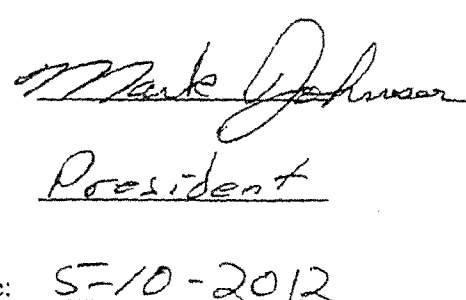 Mark Johnson
President
e: 5-10-2012